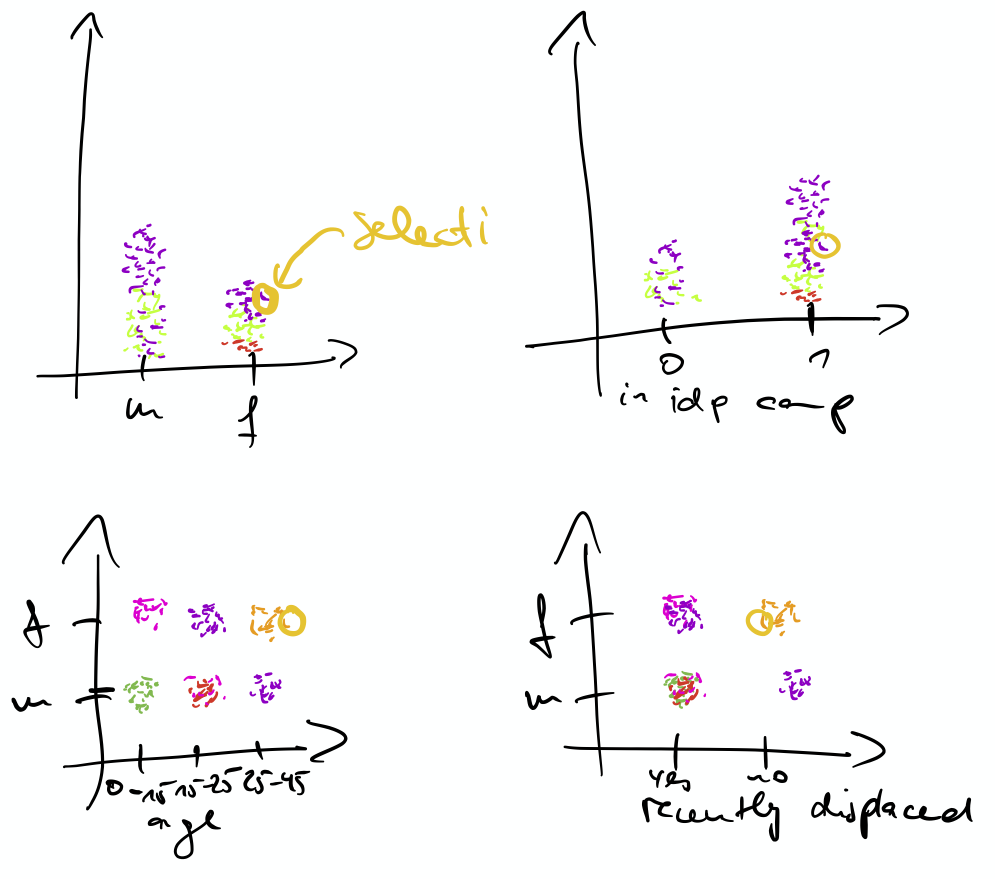 selecti
m
f
0
1
in idp camp
f
m
0-15 15-25 25-45
age
f
m
yes
no
recently displaced